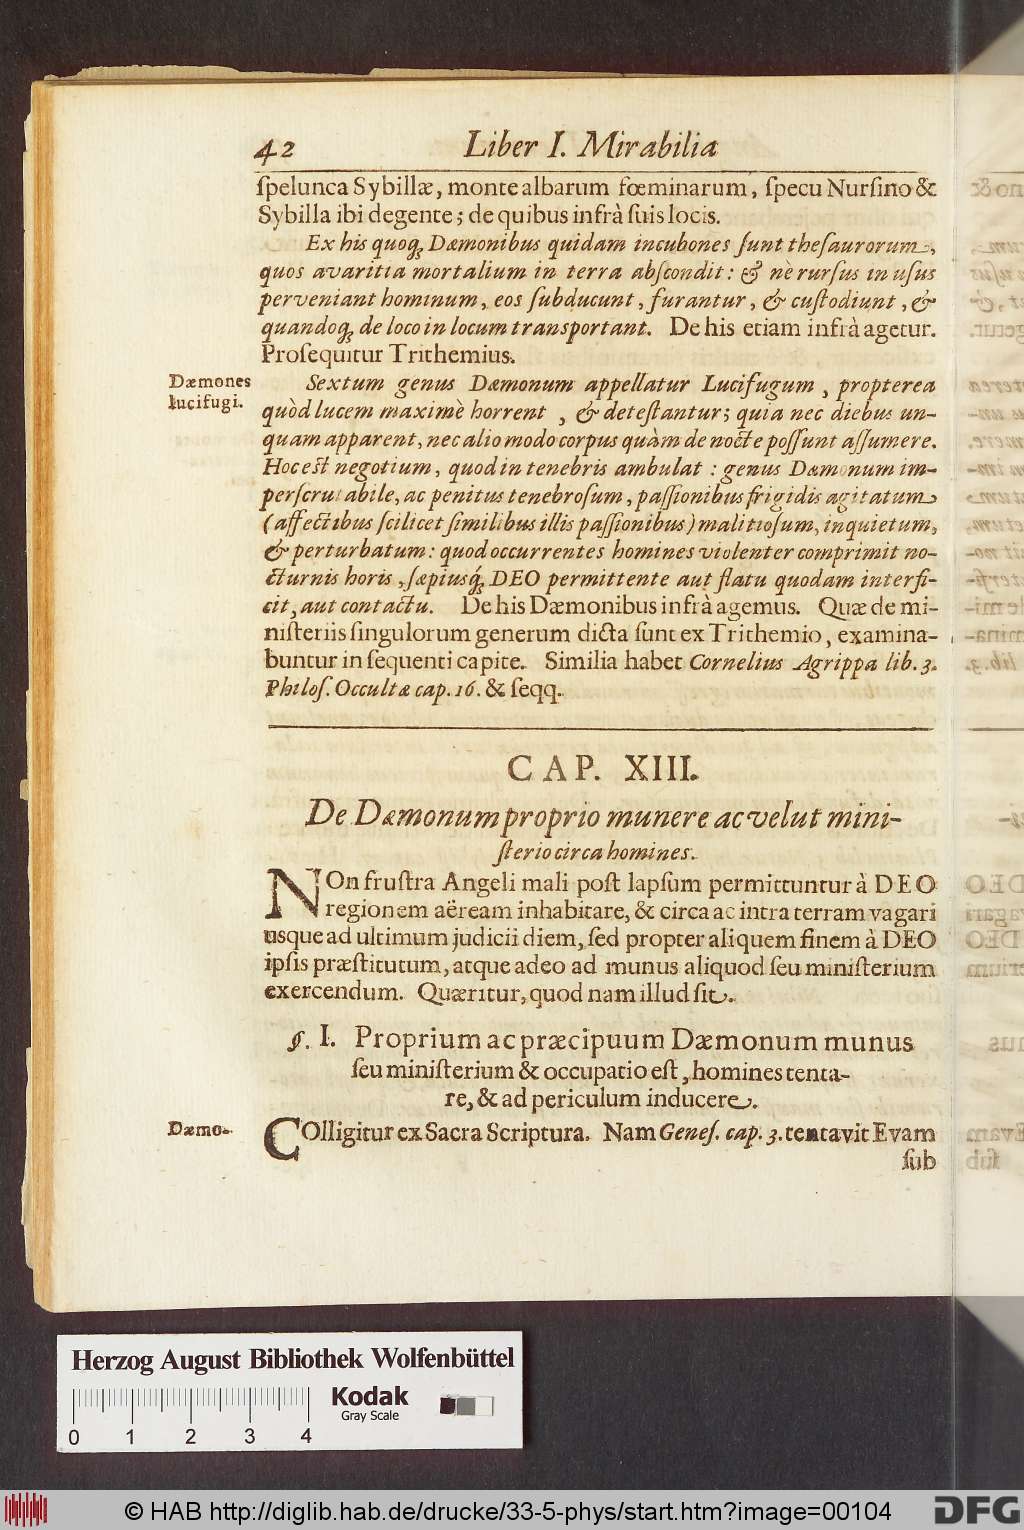 42 Liber I. Mirabilia
ſpelunca Sybillæ, monte albarum fœminarum, ſpecu Nurſino &
Sybilla ibi degente; de quibus infrà ſuis locis.
Ex his quoq́; Dæmonibus quidam incubones ſunt theſaurorum,
quos avaritia mortalium in terra abſcondit: & nè rurſus in uſus
perveniant hominum, eos ſubducunt, furantur, & cuſtodiunt, &
quandoq́; de loco in locum transportant. De his etiam infrà agetur.
Proſequitur Trithemius.
Dæmones
lucifugi.
Sextum genus Dæmonum appellatur Lucifugum, propterea
quòd lucem maximè horrent, & deteſtantur; quia nec diebus un-
quam apparent, nec alio modo corpus quàm de nocte poſſunt aſſumere.
Hoc est negotium, quod in tenebris ambulat: genus Dæmonum im-
perſcrutabile, ac penitus tenebroſum, paſſionibus frigidis agitatum
(affectibus ſcilicet ſimilibus illis paſſionibus) malitioſum, inquietum,
& perturbatum: quod occurrentes homines violenter comprimit no-
cturnis horis, ſæpiusq́; DEO permittente aut flatu quodam interfi-
cit, aut contactu. De his Dæmonibus infrà agemus. Quæ de mi-
niſteriis ſingulorum generum dicta ſunt ex Trithemio, examina-
buntur in ſequenti capite. Similia habet Cornelius Agrippa lib. 3.
Philoſ. Occultæ cap. 16. & ſeqq.
CAP. XIII.
De Dæmonum proprio munere ac velut mini-
ſterio circa homines.
NOn fruſtra Angeli mali poſt lapſum permittuntur à DEO
regionem aëream inhabitare, & circa ac intra terram vagari
usque ad ultimum judicii diem, ſed propter aliquem finem à DEO
ipſis præſtitutum, atque adeo ad munus aliquod ſeu miniſterium
exercendum. Quæritur, quod nam illud ſit.
§. I. Proprium ac præcipuum Dæmonum munus
ſeu miniſterium & occupatio eſt, homines tenta-
re, & ad periculum inducere.
Dæmo-
COlligitur ex Sacra Scriptura. Nam Geneſ. cap. 3. tentavit Evam
ſub
Herzog August Bibliothek Wolfenbüttel
Kodak
Gray Scale
0 1 2 3 4
© HAB http://diglib.hab.de/drucke/33-5-phys/start.htm?image=00104
DFG